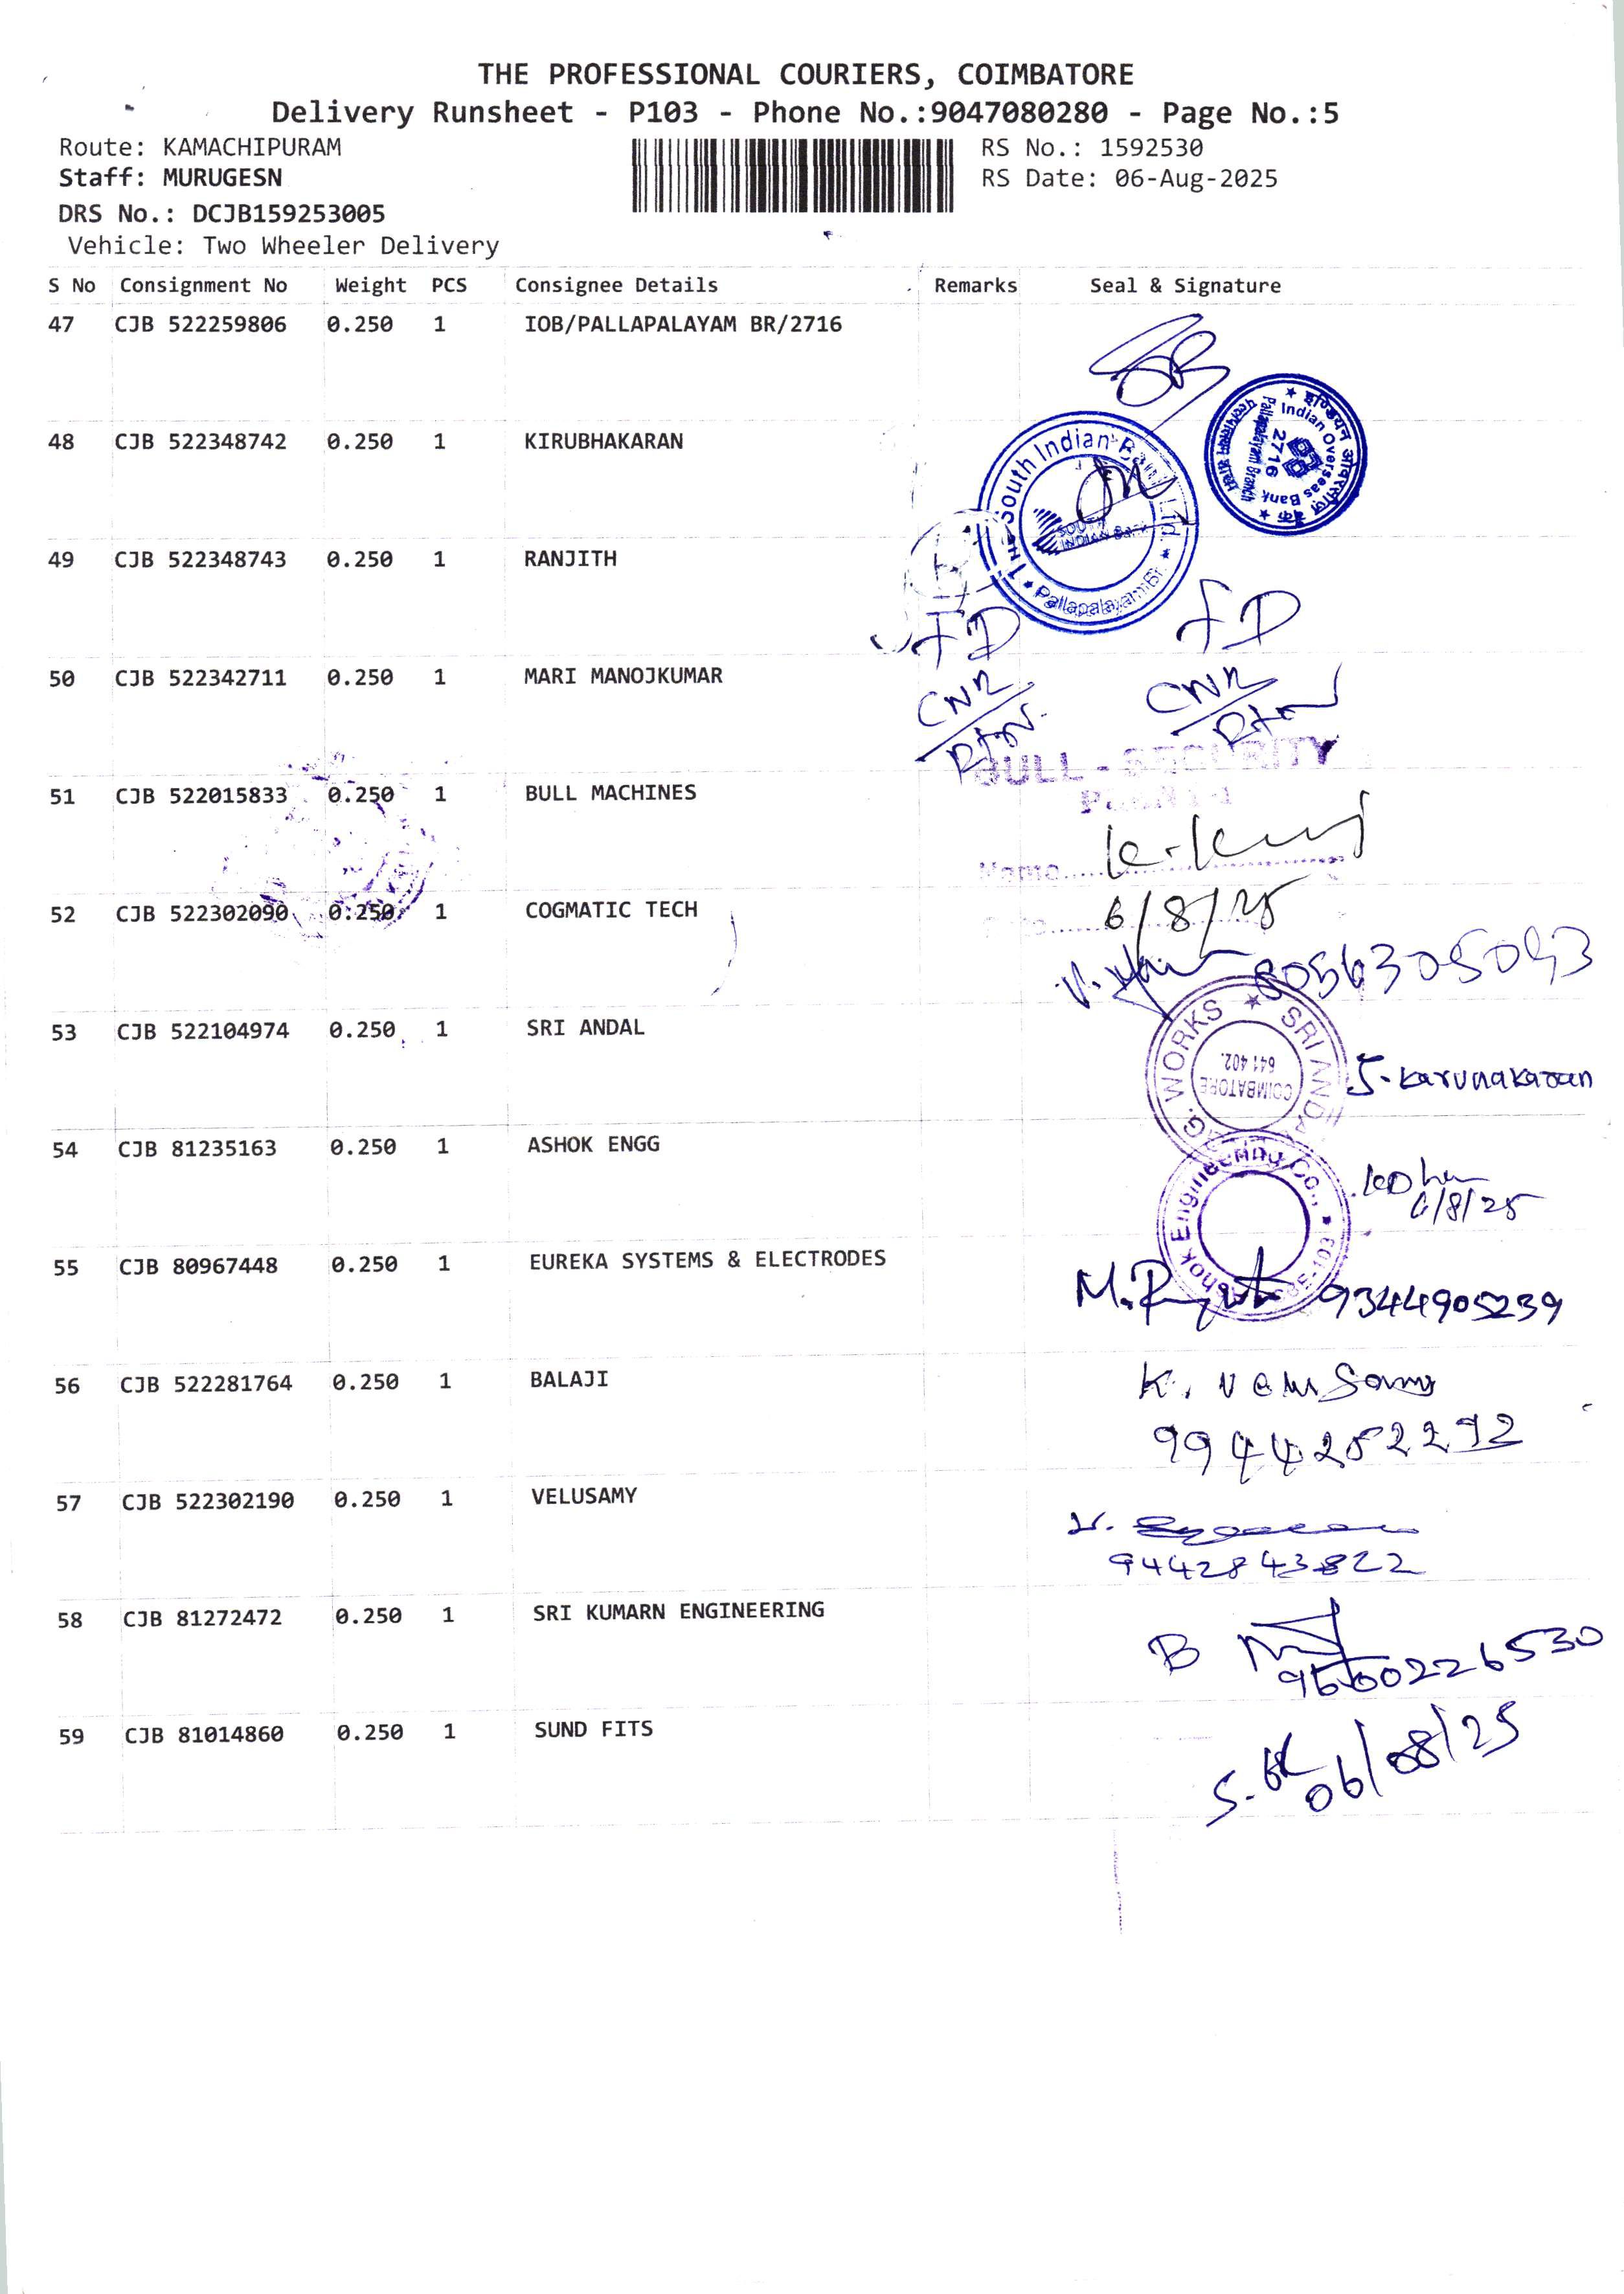 THE PROFESSIONAL COURIERS, COIMBATORE
Delivery Runsheet - P103 - Phone No.:9047080280 - Page No.:5
Route: KAMACHIPURAM
RS No.: 1592530
Staff: MURUGESN
RS Date: 06-Aug-2025
DRS No.: DCJB159253005
Vehicle: Two Wheeler Delivery
S No Consignment No Weight PCS Consignee Details Remarks Seal & Signature
47 CJB 522259806 0.250 1 IOB/PALLAPALAYAM BR/2716
इण्डियन ओवरसीज़ बैंक
Indian Overseas Bank
2716
Pallapalayam Branch
48 CJB 522348742 0.250 1 KIRUBHAKARAN
The South Indian Bank Ltd.
SOUTH INDIAN Bank
Pallapalayam Br.
49 CJB 522348743 0.250 1 RANJITH
FD FD
50 CJB 522342711 0.250 1 MARI MANOJKUMAR
CNR CNR
RTN. RTN
BULL - SECURITY
51 CJB 522015833 0.250 1 BULL MACHINES
Name
52 CJB 522302090 0.250 1 COGMATIC TECH
6/8/25
53 CJB 522104974 0.250 1 SRI ANDAL
SRI ANDAL ENGG. WORKS
COIMBATORE
641 402.
J. Karunakaran
54 CJB 81235163 0.250 1 ASHOK ENGG
Ashok Engineering Co.,
6/8/25
55 CJB 80967448 0.250 1 EUREKA SYSTEMS & ELECTRODES
9344905239
56 CJB 522281764 0.250 1 BALAJI
9944252292
57 CJB 522302190 0.250 1 VELUSAMY
9442843822
58 CJB 81272472 0.250 1 SRI KUMARN ENGINEERING
59 CJB 81014860 0.250 1 SUND FITS
06/08/25